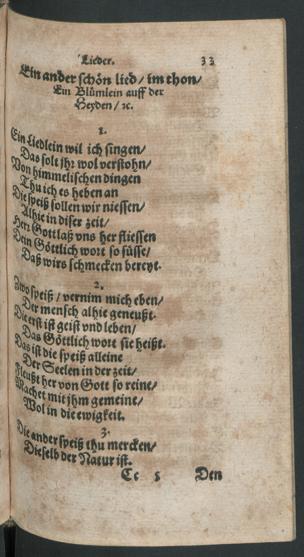 Lieder. 33
Ein ander schön lied / im thon /
Ein Blümlein auff der
Heyden / ꝛc.
1.
Ein Liedlein wil ich singen /
Das solt jhr wol verstohn /
Von himmelischen dingen
Thu ich es heben an
Die speiß sollen wir niessen /
Alhie in diser zeit /
Herr Gott laß vns her fliessen
Dein Göttlich wort so süsse /
Daß wirs schmecken bereyt.
2.
Zwo speiß / vernim mich eben /
Der mensch alhie geneußt.
Die erst ist geist vnd leben /
Das Göttlich wort sie heißt.
Das ist die speiß alleine
Der Seelen in der zeit /
Fleußt her von Gott so reine /
Machet mit jhm gemeine /
Wol in die ewigkeit.
3.
Die ander speiß thu mercken /
Dieselb der Natur ist.
Ee 5 Den